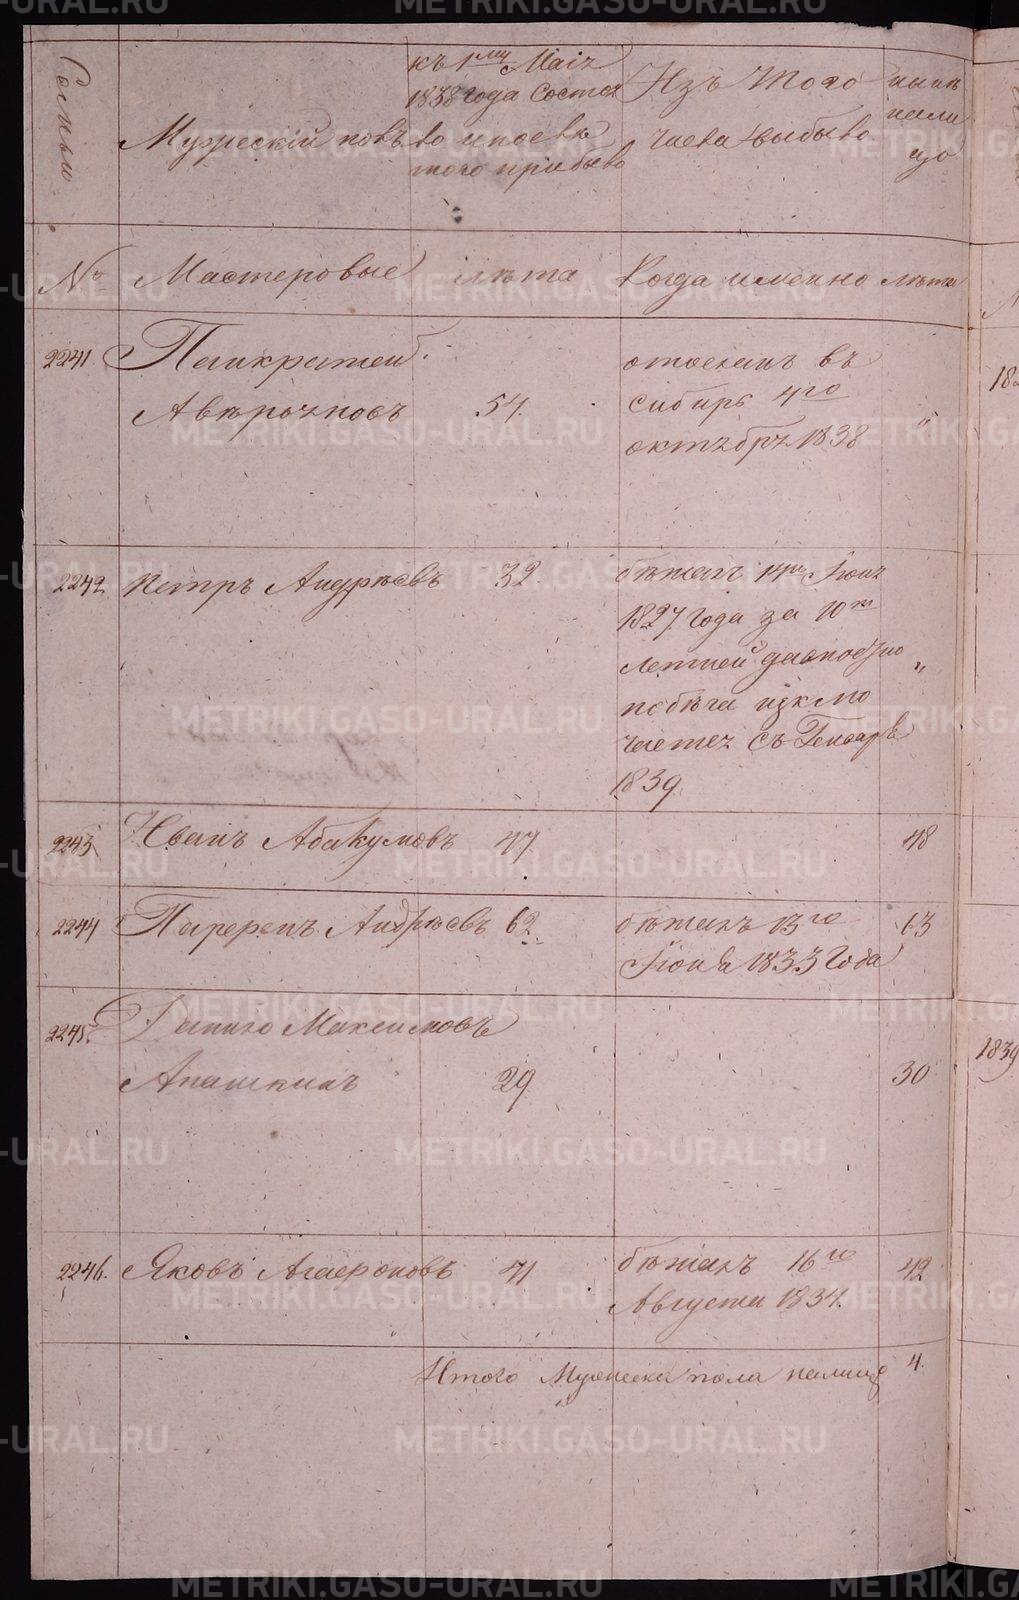 Семьи
Мужескій полъ
къ 1му Маія
1838 года Состоя
ло и после
того прибыло
Изъ Того
числа выбыло
ныне
нали
цо
№ Мастеровые лѣта Когда именно лѣта
2241 Панкратей
Авѣрочковъ 54.
отосланъ въ
сибирь 4го
октября 1838 "
2242 Петръ Андрѣевъ 32.
бѣжалъ 14го Іюня
1827 года за 10ти
летней давностію "
побѣга исклю
чается съ Генваря
1839.
2243 Иванъ Абакумовъ 47 48
2244 Андрѣевъ 62 63
бѣжалъ 13го
Іюня 1833 года
2245. Максимовъ
Апашкинъ 29 30
2246. Яковъ Агафоновъ 41 42
бѣжалъ 16го
Августа 1834.
Итого Мужеска пола налицо 4.
1839
METRIKI.GASO-URAL.RU